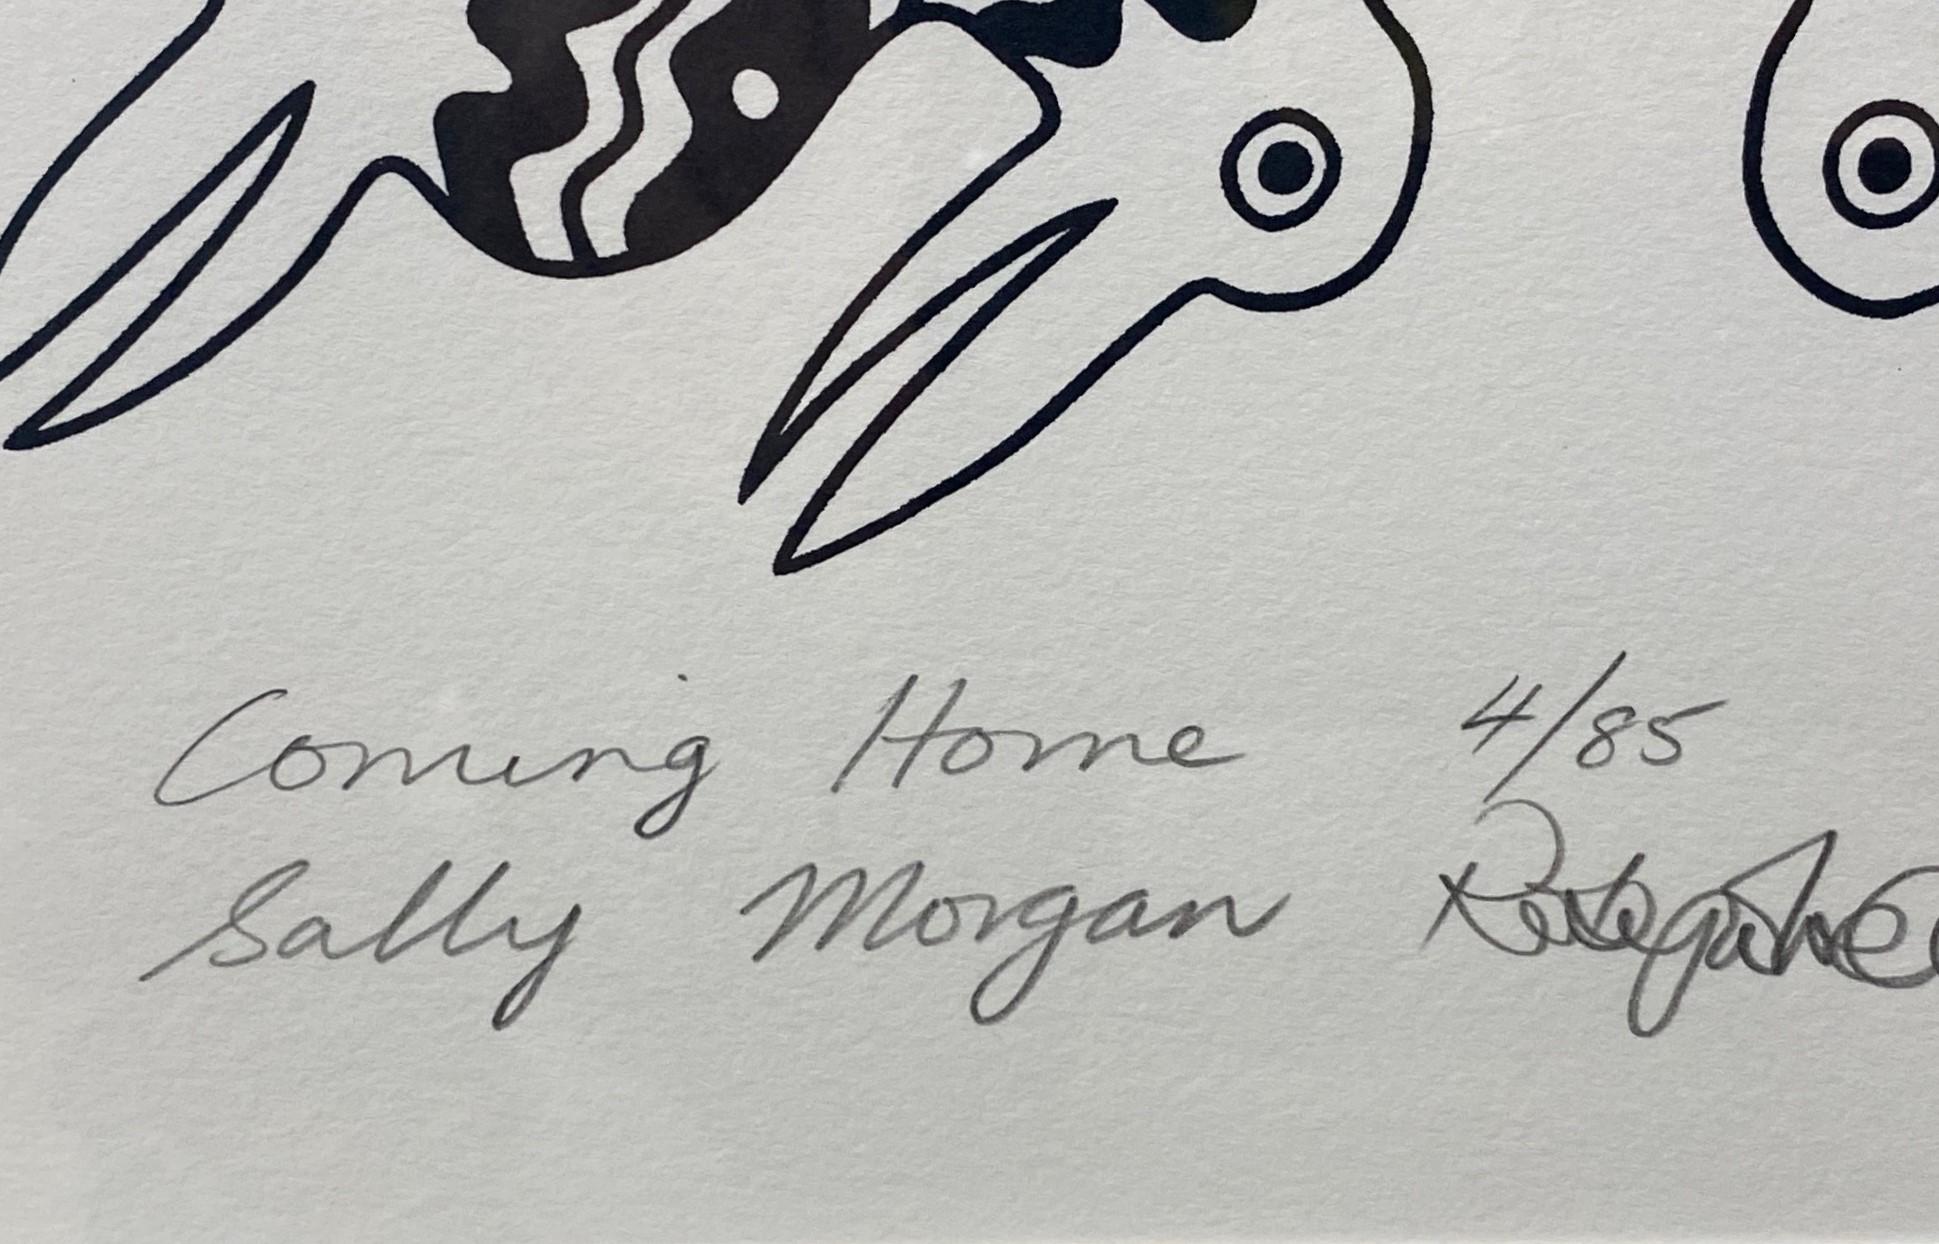 Coming Home 4/85
Sally Morgan